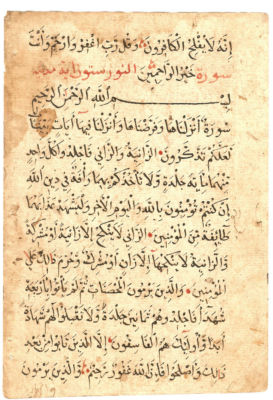 إنه لا يفلح الكافرون وقل رب اغفر وارحم وأنت
خير الراحمين سورة النور ستون آية
بسم الله الرحمن الرحيم
سورة أنزلناها وفرضناها وأنزلنا فيها آيات بينات
لعلكم تذكرون الزانية والزاني فاجلدوا كل واحد
منهما مائة جلدة ولا تأخذكم بهما رأفة في دين الله
إن كنتم تؤمنون بالله واليوم الآخر وليشهد عذابهما
طائفة من المؤمنين الزاني لا ينكح إلا زانية أو مشركة
والزانية لا ينكحها إلا زان أو مشرك وحرم ذلك على
المؤمنين والذين يرمون المحصنات ثم لم يأتوا بأربعة
شهداء فاجلدوهم ثمانين جلدة ولا تقبلوا لهم شهادة
أبدا وأولئك هم الفاسقون إلا الذين تابوا من بعد
ذلك وأصلحوا فإن الله غفور رحيم والذين يرمون